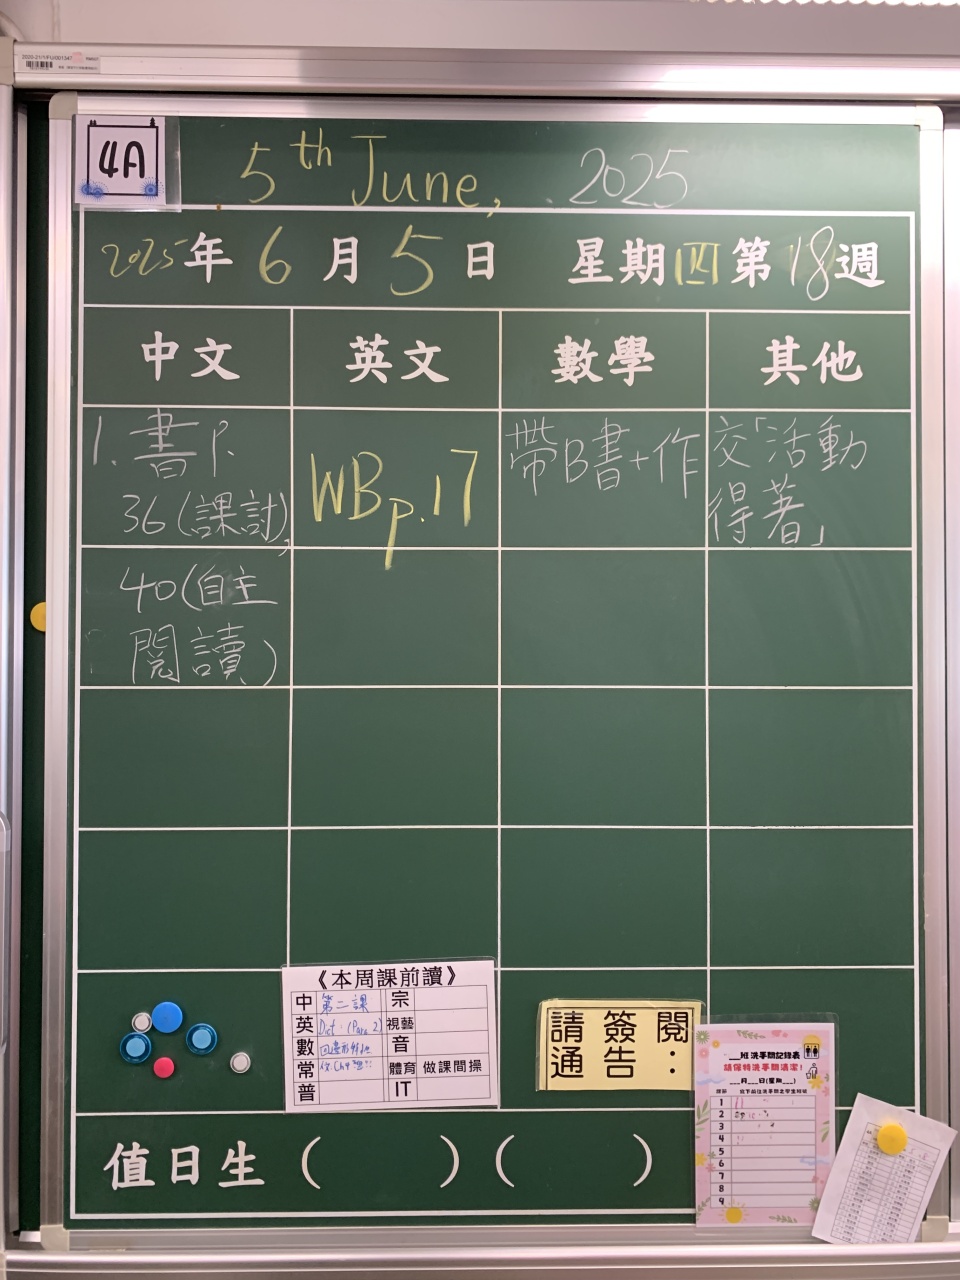 4A
5th June, 2025
2025年6月5日 星期四第18週
中文 英文 數學 其他
1. 書P.
36(課討),
40(自主
閱讀)
WBp.17
帶B書+作
交「活動
得著」
《本周課前讀》
中 第二課 宗
英 視藝
數 音
常 體育 做課間操
普 IT
請簽閱
通告:
___班洗手間記錄表
請保持洗手間清潔!
___月___日(星期___)
1
2
3
4
5
6
7
8
9
值日生( )( )